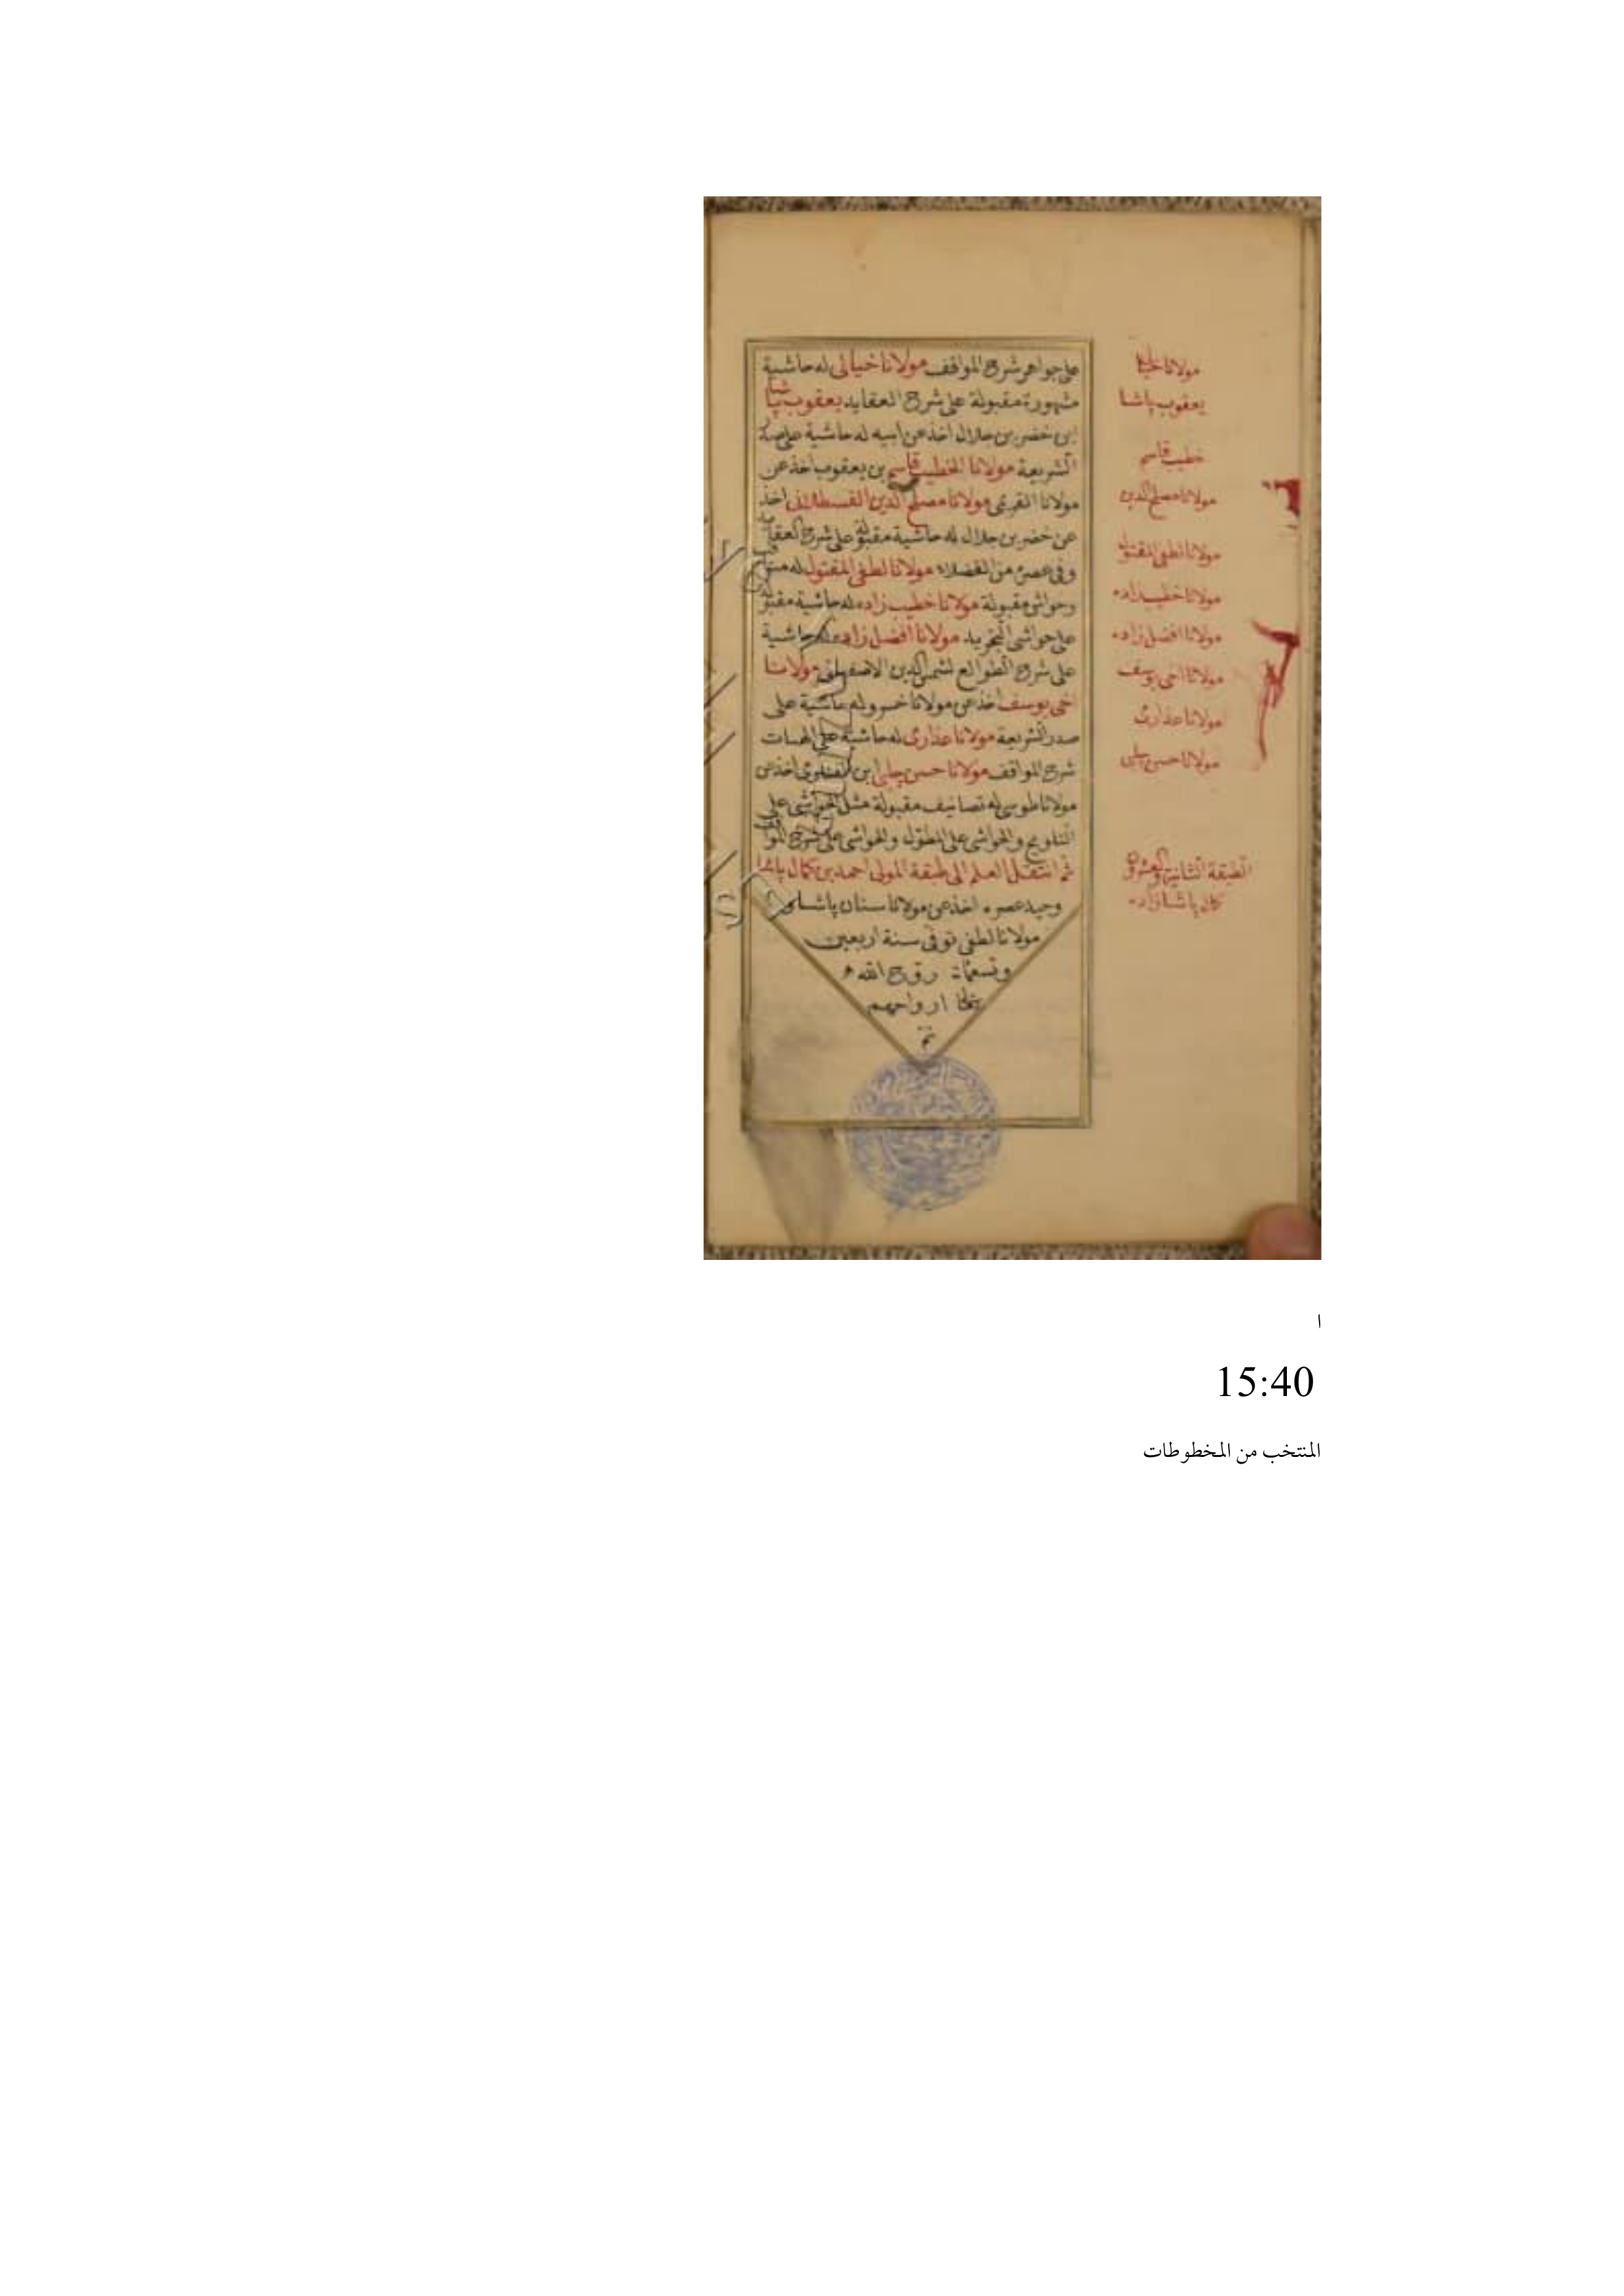 على جواهر شرح المواقف مولانا خيالى له حاشية
مشهورة مقبولة على شرح العقايد يعقوب پاشا
ابن خضر بن جلال اخذ عن ابيه له حاشية على صدر
الشريعة مولانا الخطيب قاسم بن يعقوب اخذ عن
مولانا القرى مولانا مصلح الدين القسطلانى اخذ
عن خضر بن جلال له حاشية مقبولة على شرح العقايد
وفى عصره من الفضلاء مولانا لطفى المقتول له
وحواشى مقبولة مولانا خطيب زاده له حاشية مقبولة
على حواشى التجريد مولانا افضل زاده له حاشية
على شرح الطوالع لشمس الدين الاصفهانى مولانا
اخى يوسف اخذ عن مولانا خسرو له حاشية على
صدر الشريعة مولانا عذارى له حاشية على
شرح المواقف مولانا حسن چلبى ابن الفنارى اخذ عن
مولانا طوسى له تصانيف مقبولة مثل الحواشى على
التلويح والحواشى على المطول والحواشى على شرح المواقف
ثم انتقل العلم الى طبقة المولى احمد بن كمال پاشا
وحيد عصره اخذ عن مولانا سنان پاشا و
مولانا لطفى توفى سنة اربعين
وتسعمائة روح الله
تعالى ارواحهم
تم
مولانا خيالى
يعقوب پاشا
خطيب قاسم
مولانا مصلح الدين
مولانا لطفى المقتول
مولانا خطيب زاده
مولانا افضل زاده
مولانا اخى يوسف
مولانا عذارى
مولانا حسن چلبى
الطبقة الثانية والعشرون
كمال پاشا زاده
ا
15:40
المنتخب من المخطوطات